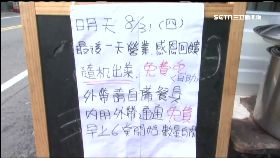 SETN.COM
三立新聞網
明天 8/31 (四)
最後一天營業 感恩回饋
隨机出菜, 免費吃
外帶請自備餐具
內用外帶通通免費
早上6:00開始